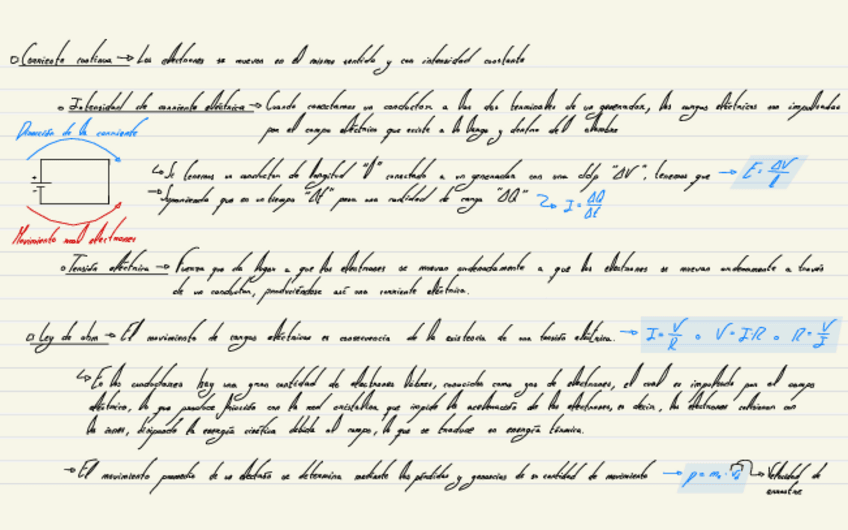 Corriente continua → Los electrones se mueven en el mismo sentido y con intensidad constante
Intensidad de corriente eléctrica → Cuando conectamos un conductor a los dos terminales de un generador, las cargas eléctricas son impulsadas
por el campo eléctrico que existe a lo largo y dentro del alambre
Dirección de la corriente
+
-
Movimiento real electrones
↳ Si tenemos un conductor de longitud "l" conectado a un generador con una ddp "ΔV", tenemos que → E = ΔV/l
→ Suponiendo que en un tiempo "Δt" pasa una cantidad de carga "ΔQ" ↳ I = ΔQ/Δt
Tensión eléctrica → Fuerza que da lugar a que los electrones se muevan ordenadamente a que los electrones se muevan ordenamente a través
de un conductor, produciéndose así una corriente eléctrica.
Ley de ohm → El movimiento de cargas eléctricas es consecuencia de la existencia de una tensión eléctrica. → I = V/R o V = I·R o R = V/I
↳ En los conductores hay una gran cantidad de electrones libres, conocidos como gas de electrones, el cual es impulsado por el campo
eléctrico, lo que produce fricción con la red cristalina que impide la aceleración de los electrones, es decir, los electrones colisionan con
los iones, disipando la energía cinética debida al campo, lo que se traduce en energía térmica.
→ El movimiento promedio de un electrón se determina mediante las pérdidas y ganancias de su cantidad de movimiento → p = mₑ · v → Velocidad de
arrastre